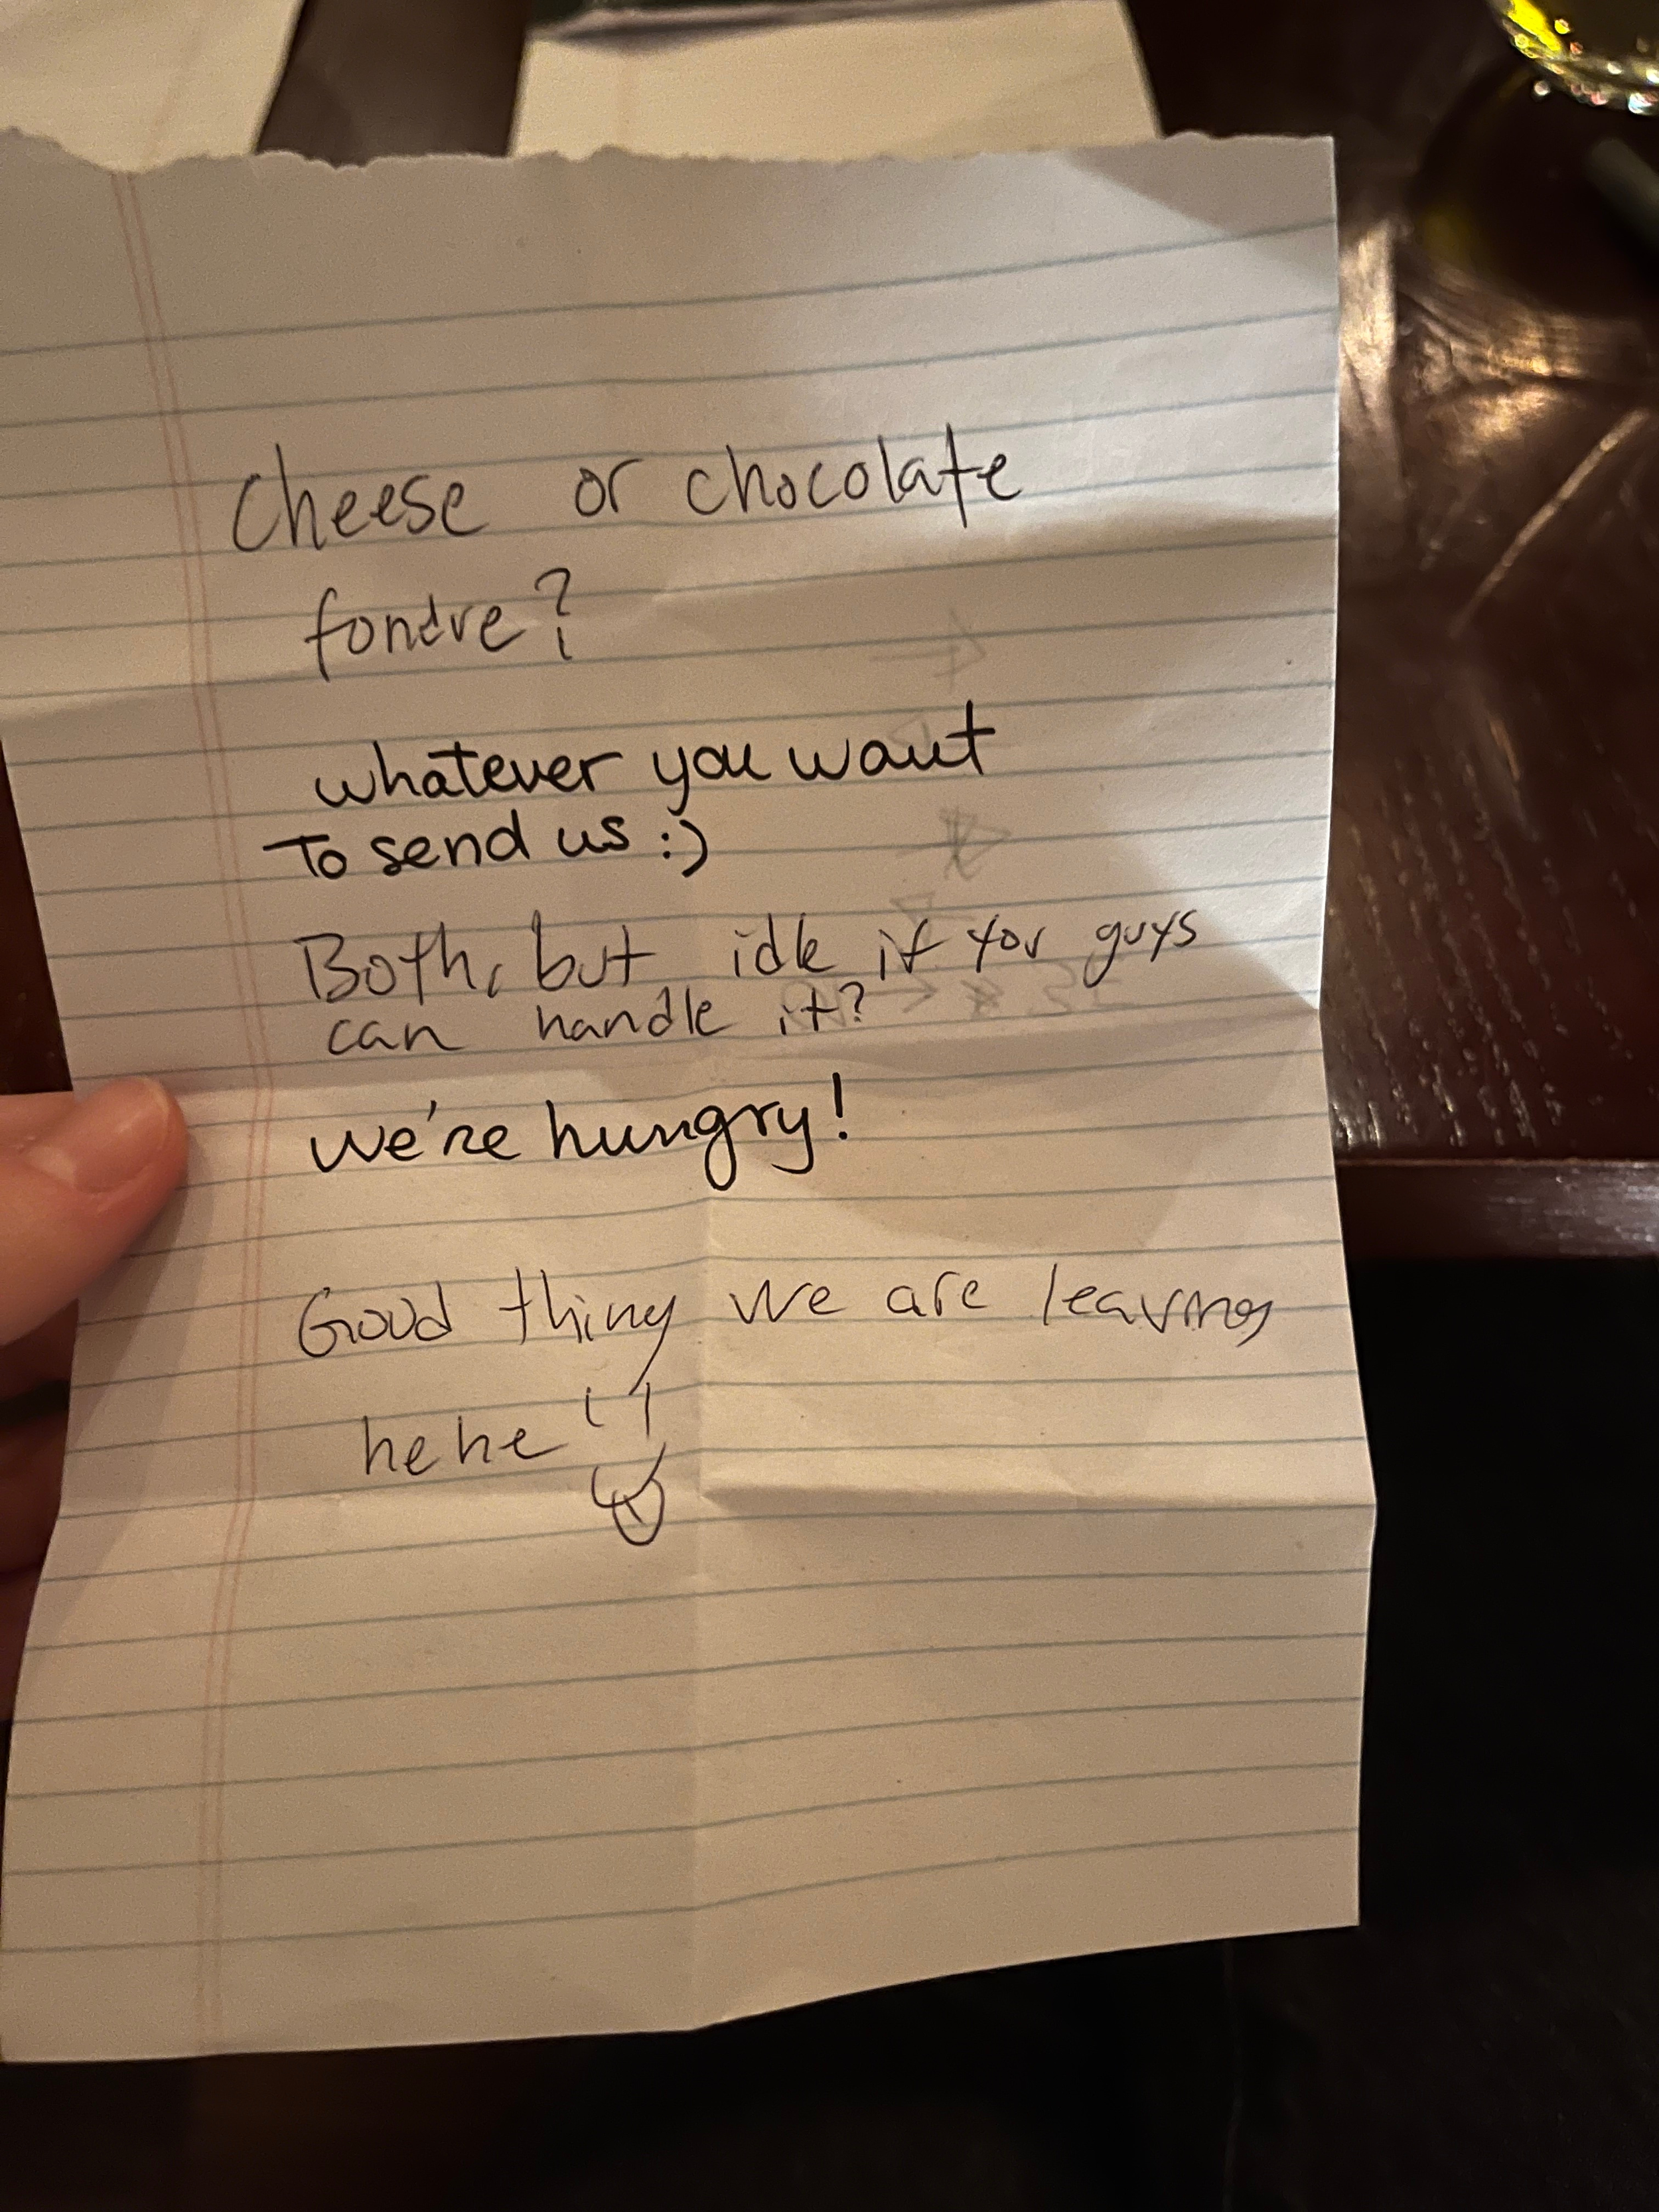 Cheese or chocolate
fondre?
whatever you want
To send us :)
Both, but idk if you guys
can handle it?
we're hungry!
Good thing we are leaving
hehe